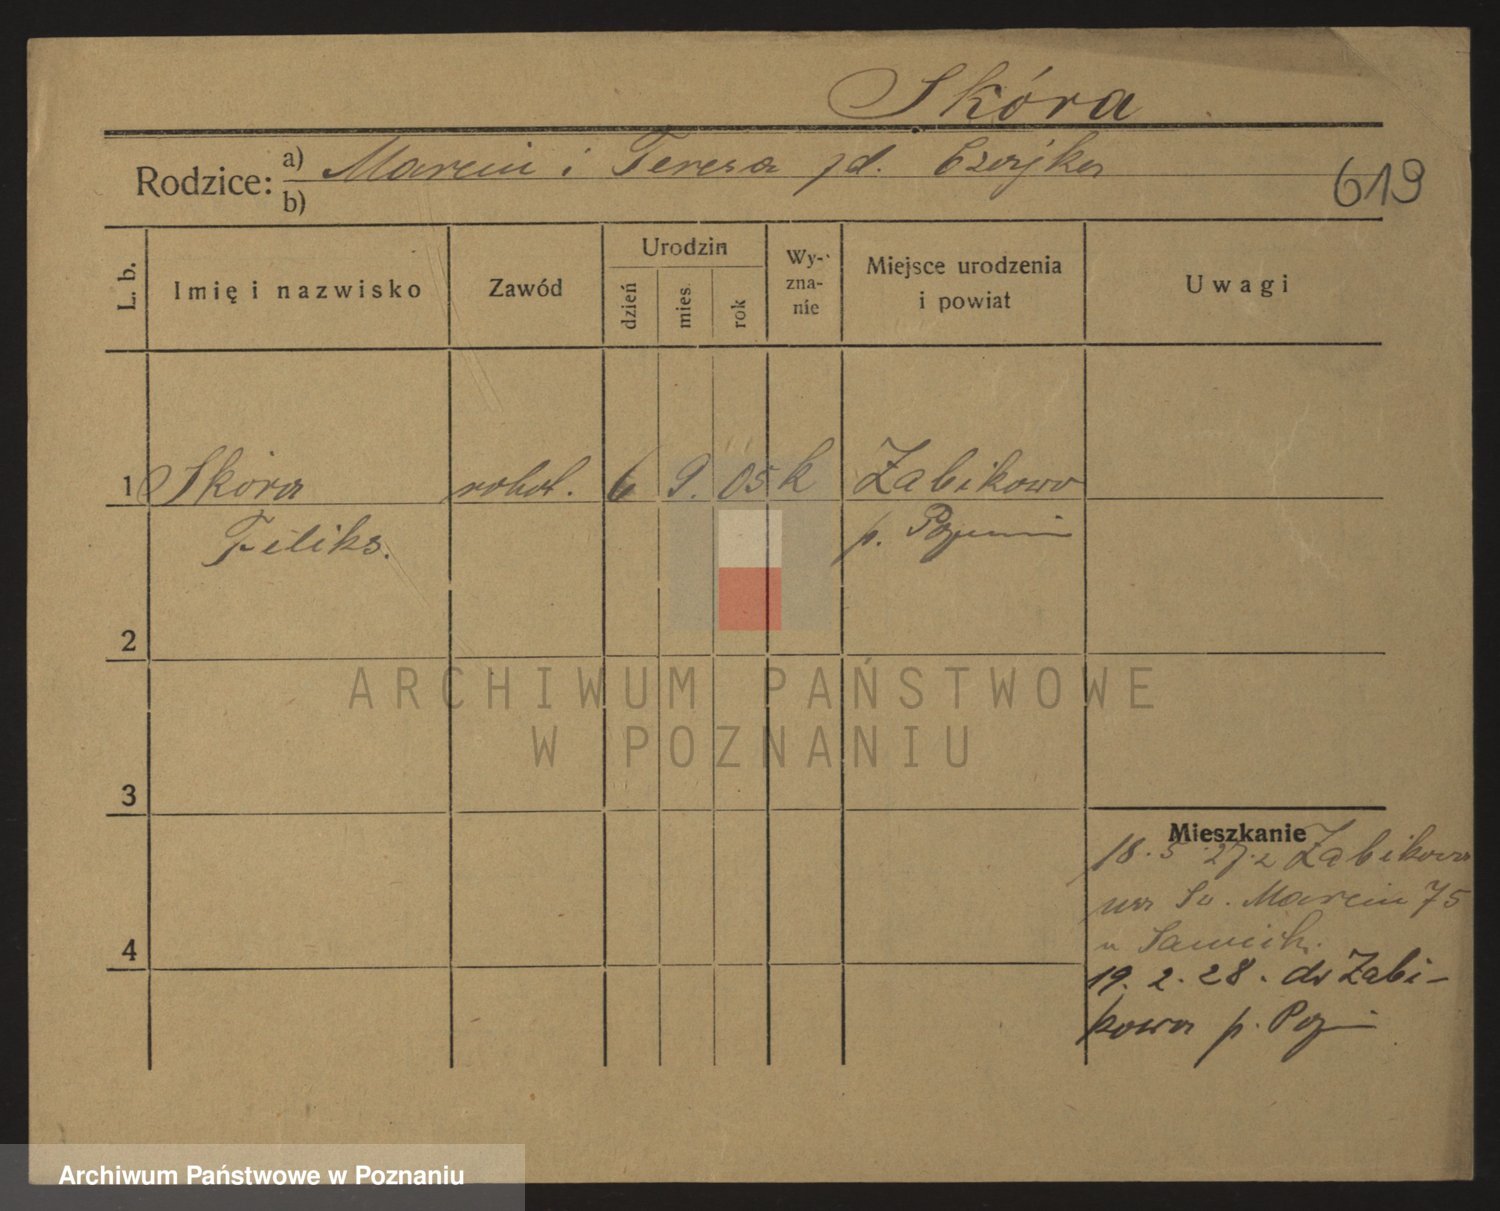 Skóra
Rodzice: a) Marcin i Teresa zd. Czajka
b)
619
L. b.
Imię i nazwisko
Zawód
Urodzin
dzień
mies.
rok
Wy-
zna-
nie
Miejsce urodzenia
i powiat
Uwagi
1 Skóra robot. 6 9. 05 k Żabikowo
Feliks. p. Poznań
2
3
4
Mieszkanie
18. 5 27. z Żabikowa
na Św. Marcin 75
u Sawick.
19. 2. 28. do Żabi-
kowa p. Pozn
ARCHIWUM PAŃSTWOWE
W POZNANIU
Archiwum Państwowe w Poznaniu